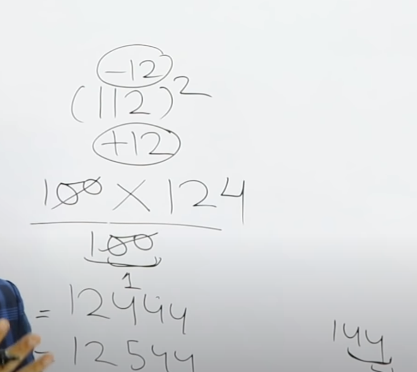 -12
(112)²
+12
100 × 124
100
1
= 12444
= 12544
144